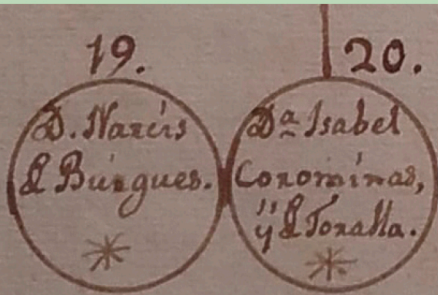 19.
20.
D. Narcís
d Búrgues.
Dª Isabel
Corominas,
ÿ d Toralla.